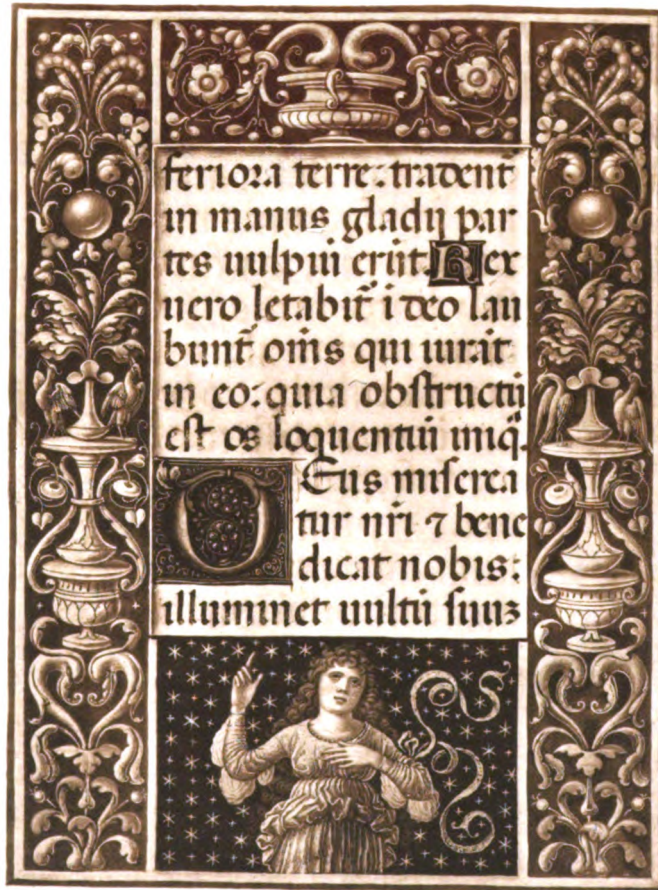 feriora terre: tradent̃
in manus gladij par
tes uulpiū erūt. Rex
uero letabit̃ i deo lau
bunt̃ om̄s qui iurāt
in eo: quia obstructū
est os loquentiū iniq̄.
Deus miserea
tur nr̄i ⁊ bene
dicat nobis:
illuminet uultū suuꝫ